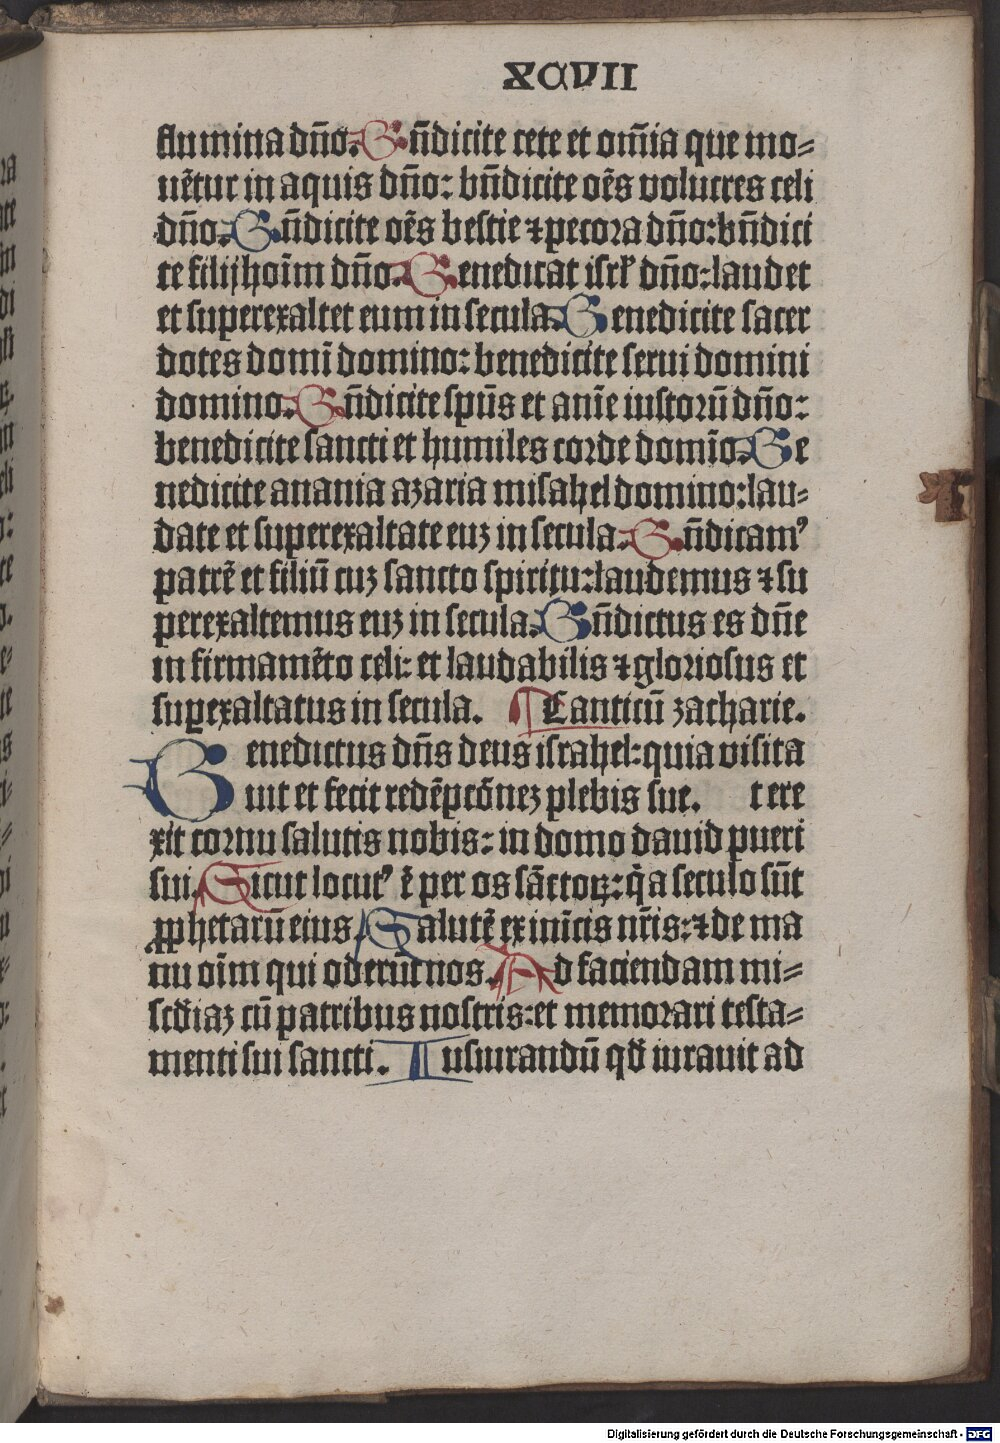 XCVII
flumina dño. Bñdicite cete et om̃ia que mo⸗
uẽtur in aquis dño: bñdicite oẽs volucres celi
dño. Bñdicite oẽs bestie ⁊ pecora dño: bñdici
te filij hoĩm dño. Benedicat isrł dño: laudet
et superexaltet eum in secula. Benedicite sacer
dotes domĩ domino: benedicite serui domini
domino. Bñdicite spũs et anĩe iustorũ dño:
benedicite sancti et humiles corde domĩo. Be
nedicite anania azaria misahel domino: lau⸗
date et superexaltate euz in secula. Bñdicamꝰ
patrẽ et filiũ cuz sancto spiritu: laudemus ⁊ su
perexaltemus euz in secula. Bñdictus es dñe
in firmamẽto celi: et laudabilis ⁊ gloriosus et
suꝑexaltatus in secula. ¶ Canticũ zacharie.
Benedictus dñs deus israhel: quia visita
uit et fecit redẽptõnez plebis sue. t ere
xit cornu salutis nobis: in domo dauid pueri
sui. Sicut locutꝰ ẽ per os sãctoꝝ: q̃ a seculo sũt
ꝓphetarũ eius. Salutẽ ex inĩcis nr̃is: ⁊ de ma
nu oĩm qui oderũt nos. Ad faciendam mi⸗
scđiaz cũ patribus nostris: et memorari testa⸗
menti sui sancti. Iusiurandũ qđ iurauit ad
Digitalisierung gefördert durch die Deutsche Forschungsgemeinschaft - DFG